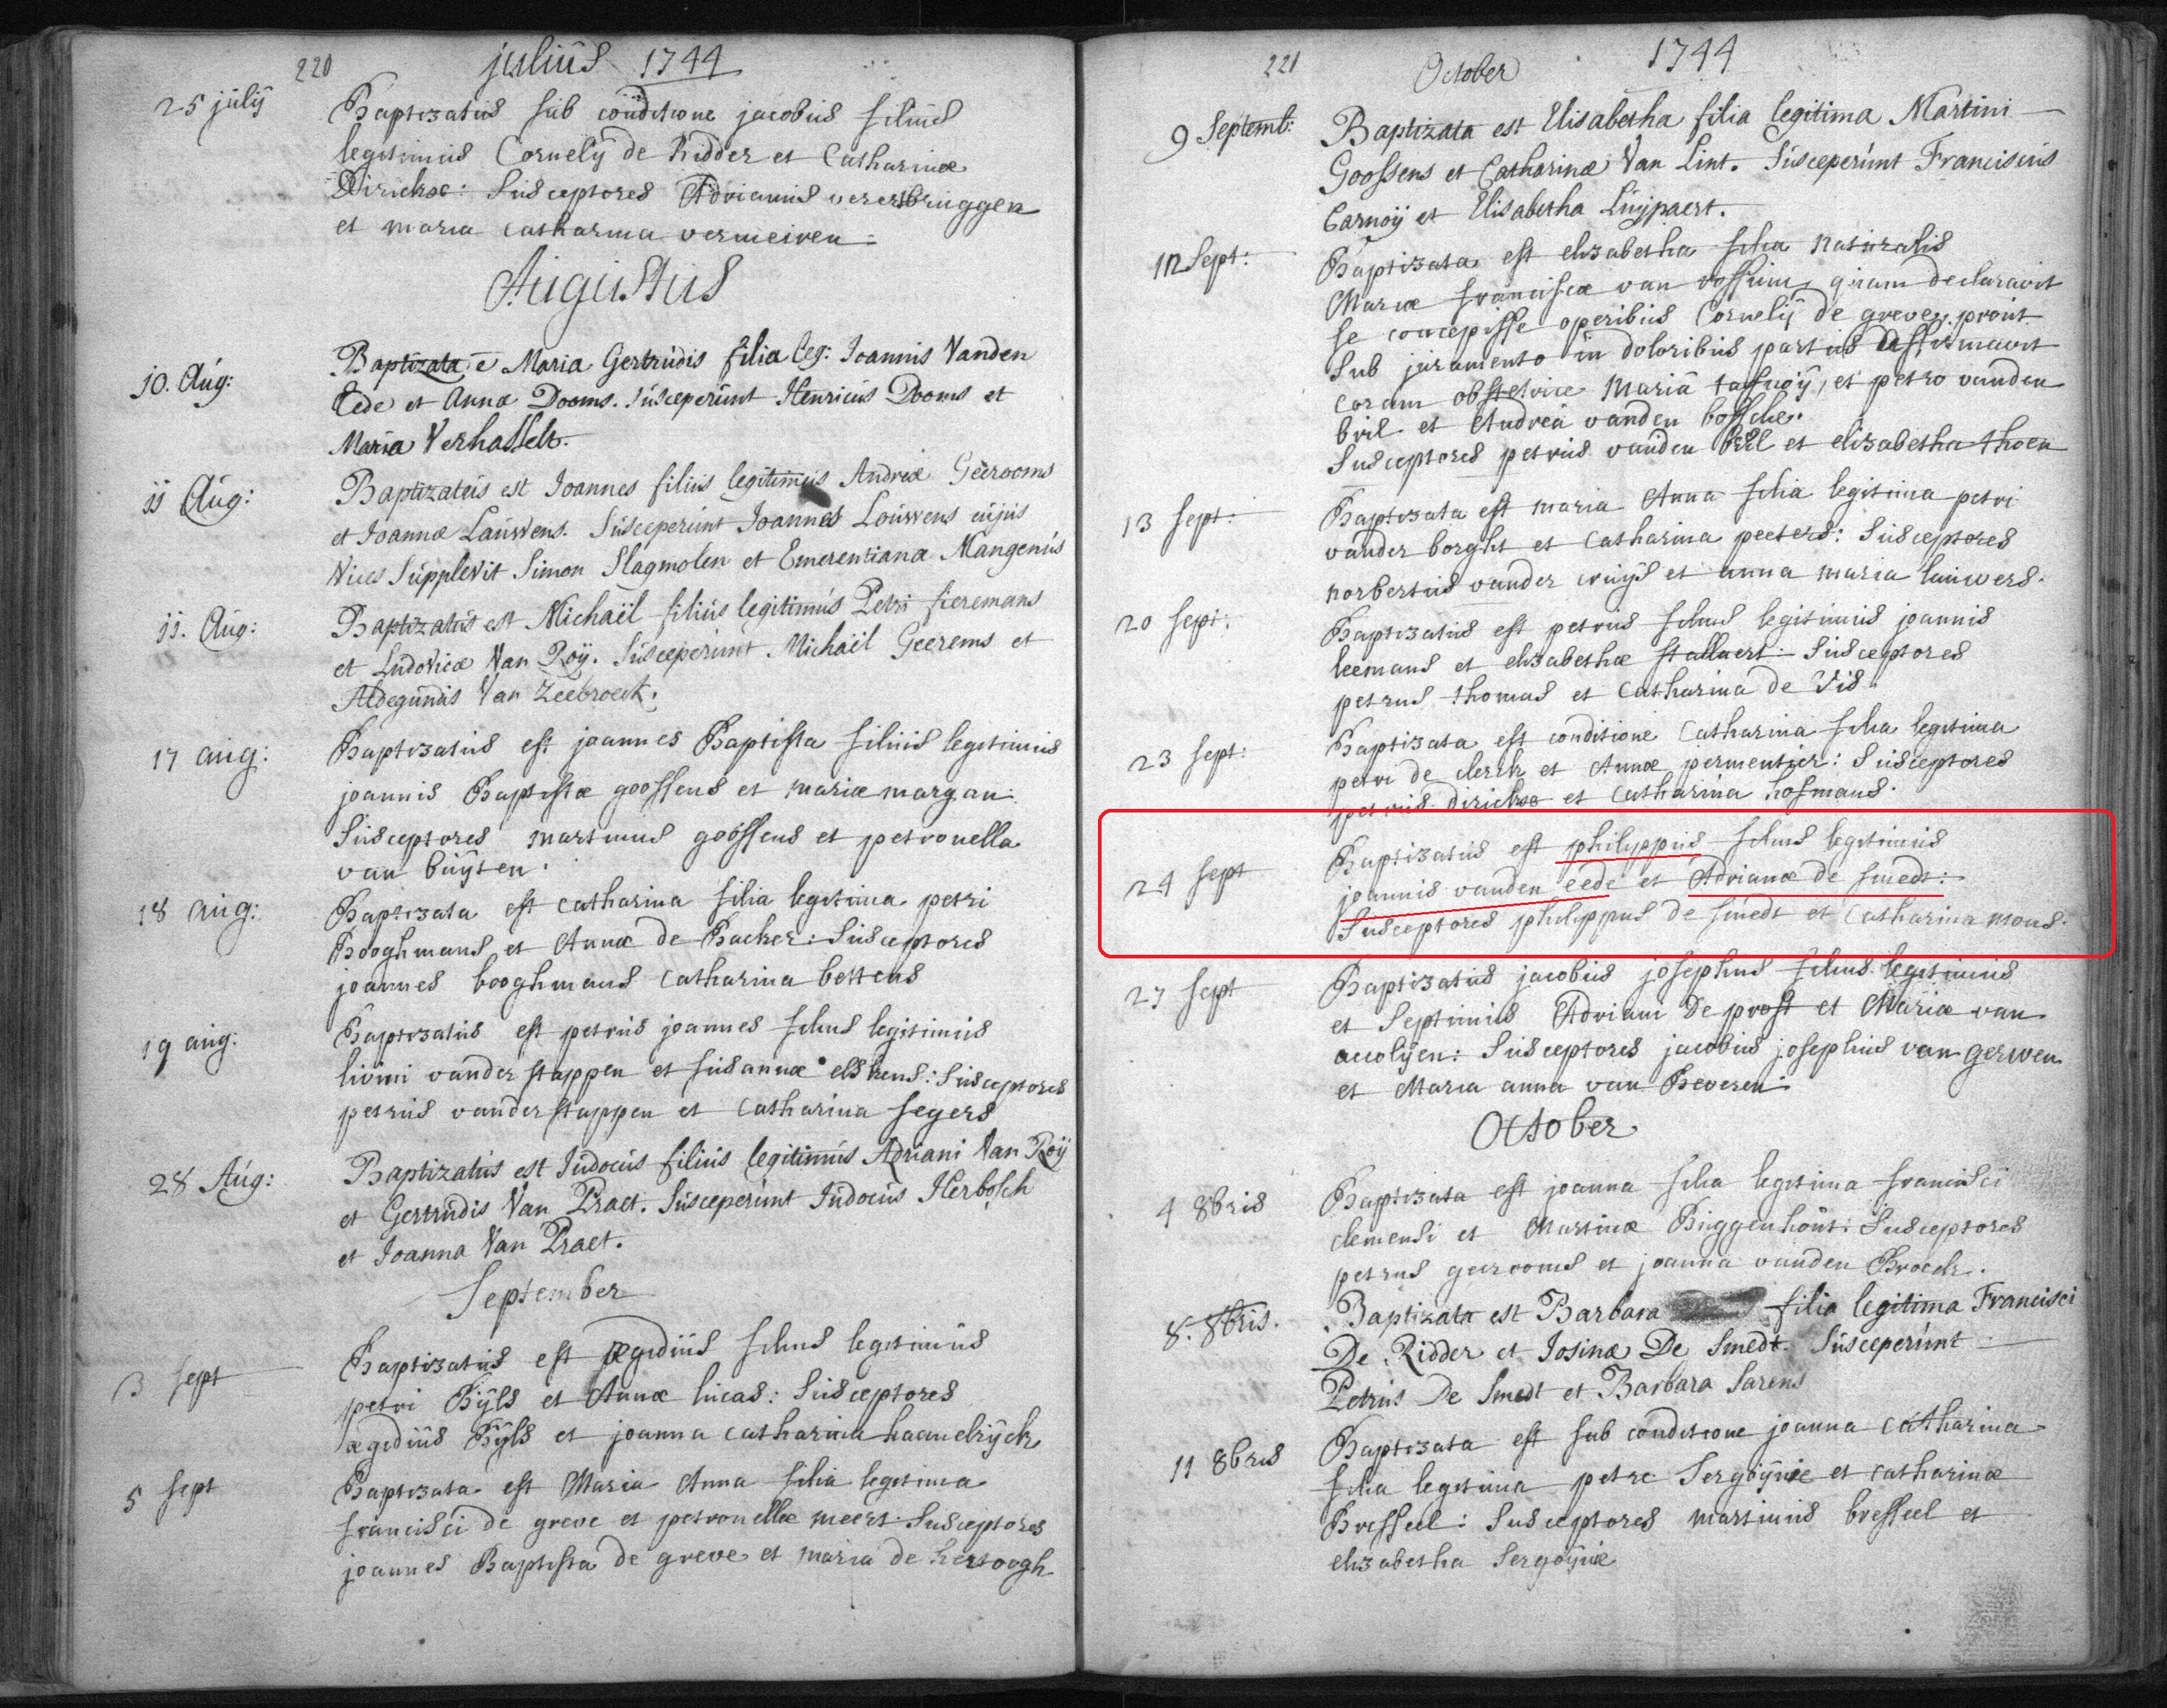 220 juliüs 1744
25 julij Baptizatus sub conditione jacobus filius
legitimus Cornelij de Ridder et Catharinæ
Dirickse: Susceptores Adrianus verersbruggen
et maria catharina vermeiren
Augustus
10. Aug: Baptizata ē Maria Gertrudis filia leg: Joannis Vanden
Eede et Annæ Dooms. Susceperunt Henricus Dooms et
Maria Verhasselt.
11 Aug: Baptizatus est Joannes filius legitimus Andreæ Geerooms
et Joannæ Lauwens. Susceperunt Joannes Louwens cujus
Vices Supplevit Simon Slagmolen et Emerentiana Mangenus
11. Aug: Baptizatus est Michaël filius legitimus Petri fieremans
et Ludovicæ Van Roÿ. Susceperunt Michaël Geerems et
Aldegundis Van Zeebroeck.
17 aug: Baptizatus est joannes Baptista filius legitimus
joannis Baptistæ goossens et mariæ margan:
Susceptores martinus goossens et petronella
van buÿten.
18 aug: Baptizata est catharina filia legitima petri
Booghmans et Annæ de Backer: Susceptores
joannes booghmans catharina bettens
19 aug: Baptizatus est petrus joannes filius legitimus
livini vander stappen et susannæ elskens: Susceptores
petrus vander stappen et catharina segers
28 Aug: Baptizatus est Judocus filius legitimus Adriani Van Roÿ
et Gertrudis Van Praet. Susceperunt Judocus Herbosch
et Joanna Van Praet.
September
3 sept Baptizatus est Ægidius filius legitimus
petri Bÿls et Annæ lucas: Susceptores
ægidius Bÿls et joanna catharina haemelrÿck
5 sept Baptizata est Maria Anna filia legitima
francisci de greve et petronellæ meert: Susceptores
joannes Baptista de greve et maria de hertoogh
221 October 1744
9 Septemb: Baptizata est Elisabetha filia legitima Martini
Goossens et Catharinæ Van Lint. Susceperunt Franciscus
Carnoÿ et Elisabetha Luÿpaert.
12 Sept: Baptizata est elizabetha filia naturalis
Mariæ franciscæ van rossum, quam declaravit
se concepisse operibus Cornelij de greve, prout
Sub juramento in doloribus partus affirmavit
coram obstetrice Mariâ tasnoÿ, et petro vanden
bril et Andreâ vanden bossche.
Susceptores petrus vanden bril et elizabetha thoen
13 sept: Baptizata est maria Anna filia legitima petri
vander borght et catharina peeters: Susceptores
norbertus vander cruÿs et anna maria lauwers.
20 sept: Baptizatus est petrus filius legitimus joannis
leemans et elizabethæ stallaert: Susceptores
petrus thomas et catharina de Vis.
23 sept: Baptizata est conditione Catharina filia legitima
petri de clerck et Annæ permentier: Susceptores
petrus dirickse et catharina hofmans.
24 sept Baptizatus est philippus filius legitimus
joannis vanden eede et Adrianæ de smedt:
Susceptores philippus de smedt et Catharina mons.
27 sept Baptizatus jacobus josephus filius legitimus
et Septimus Adriani De prost et Mariæ van
accolÿen: Susceptores jacobus josephus van gerwen
et Maria anna van Beveren
October
4 8bris Baptizata est joanna filia legitima francisci
clementi et Martinæ Buggenhout: Susceptores
petrus geerooms et joanna vanden Broeck.
8. 8bris. Baptizata est Barbara filia legitima Francisci
De Ridder et Josinæ De Smedt. Susceperunt
Petrus De Smedt et Barbara Sarens
11 8bris Baptizata est sub conditione joanna catharina
filia legitima petri Sergoÿnie et catharinæ
Bresseel: Susceptores martinus bresseel et
elizabetha Sergoÿnie